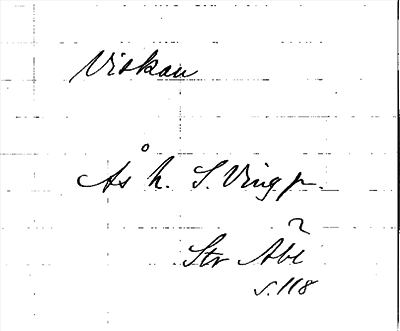 Viskan
Ås h. S. Ving p.
Str Abl
s. 118